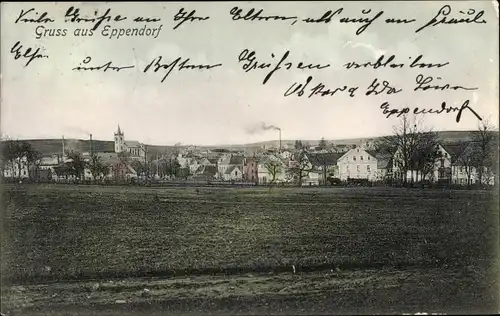 Viele Grüsse an Ihre Eltern und auch an Fräul.
Gruss aus Eppendorf
unter besten Grüssen verbleiben
Oskar & Ida
Eppendorf